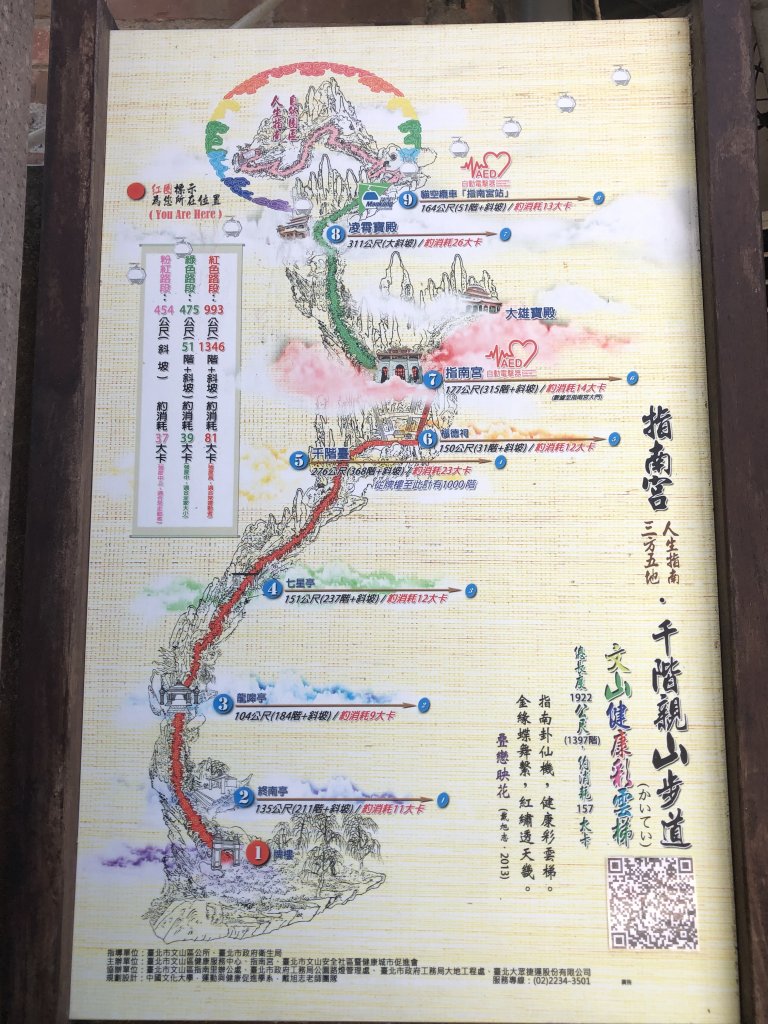 人生指南
紅圈標示
為您所在位置
( You Are Here )
AED
自動電擊器
9 貓空纜車「指南宮站」 8
164公尺(51階+斜坡) / 約消耗13大卡
Maokong
8 凌霄寶殿 7
311公尺(大斜坡) / 約消耗26大卡
大雄寶殿
AED
自動電擊器
7 指南宮 6
177公尺(315階+斜坡) / 約消耗14大卡
6 福德祠 5
150公尺(31階+斜坡) / 約消耗12大卡
5 千階臺 4
276公尺(368階+斜坡) / 約消耗23大卡
從牌樓至此計有1000階
4 七星亭 3
151公尺(237階+斜坡) / 約消耗12大卡
3 龍啣亭 2
104公尺(184階+斜坡) / 約消耗9大卡
2 終南亭 1
135公尺(211階+斜坡) / 約消耗11大卡
1 牌樓
紅色路段：993公尺(1346階+斜坡)約消耗81大卡
綠色路段：475公尺(51階+斜坡)約消耗39大卡
粉紅路段：454公尺(斜坡)約消耗37大卡
指南宮 人生指南 三方五地・千階親山步道
文山健康彩雲梯(かいてい)
總長度1922公尺(1397階)，約消耗157大卡
指南卦仙機，健康彩雲梯。
金緣蝶舞繁，紅繡透天畿。
疊戀映花 (戴旭志，2013)
指導單位：臺北市文山區公所、臺北市政府衛生局
主辦單位：臺北市文山區健康服務中心、指南宮、臺北市文山安全社區暨健康城市促進會
協辦單位：臺北市文山區指南里辦公處、臺北市政府工務局公園路燈管理處、臺北市政府工務局大地工程處、臺北大眾捷運股份有限公司
規劃設計：中國文化大學，運動與健康促進學系，戴旭志老師團隊
服務專線：(02)2234-3501